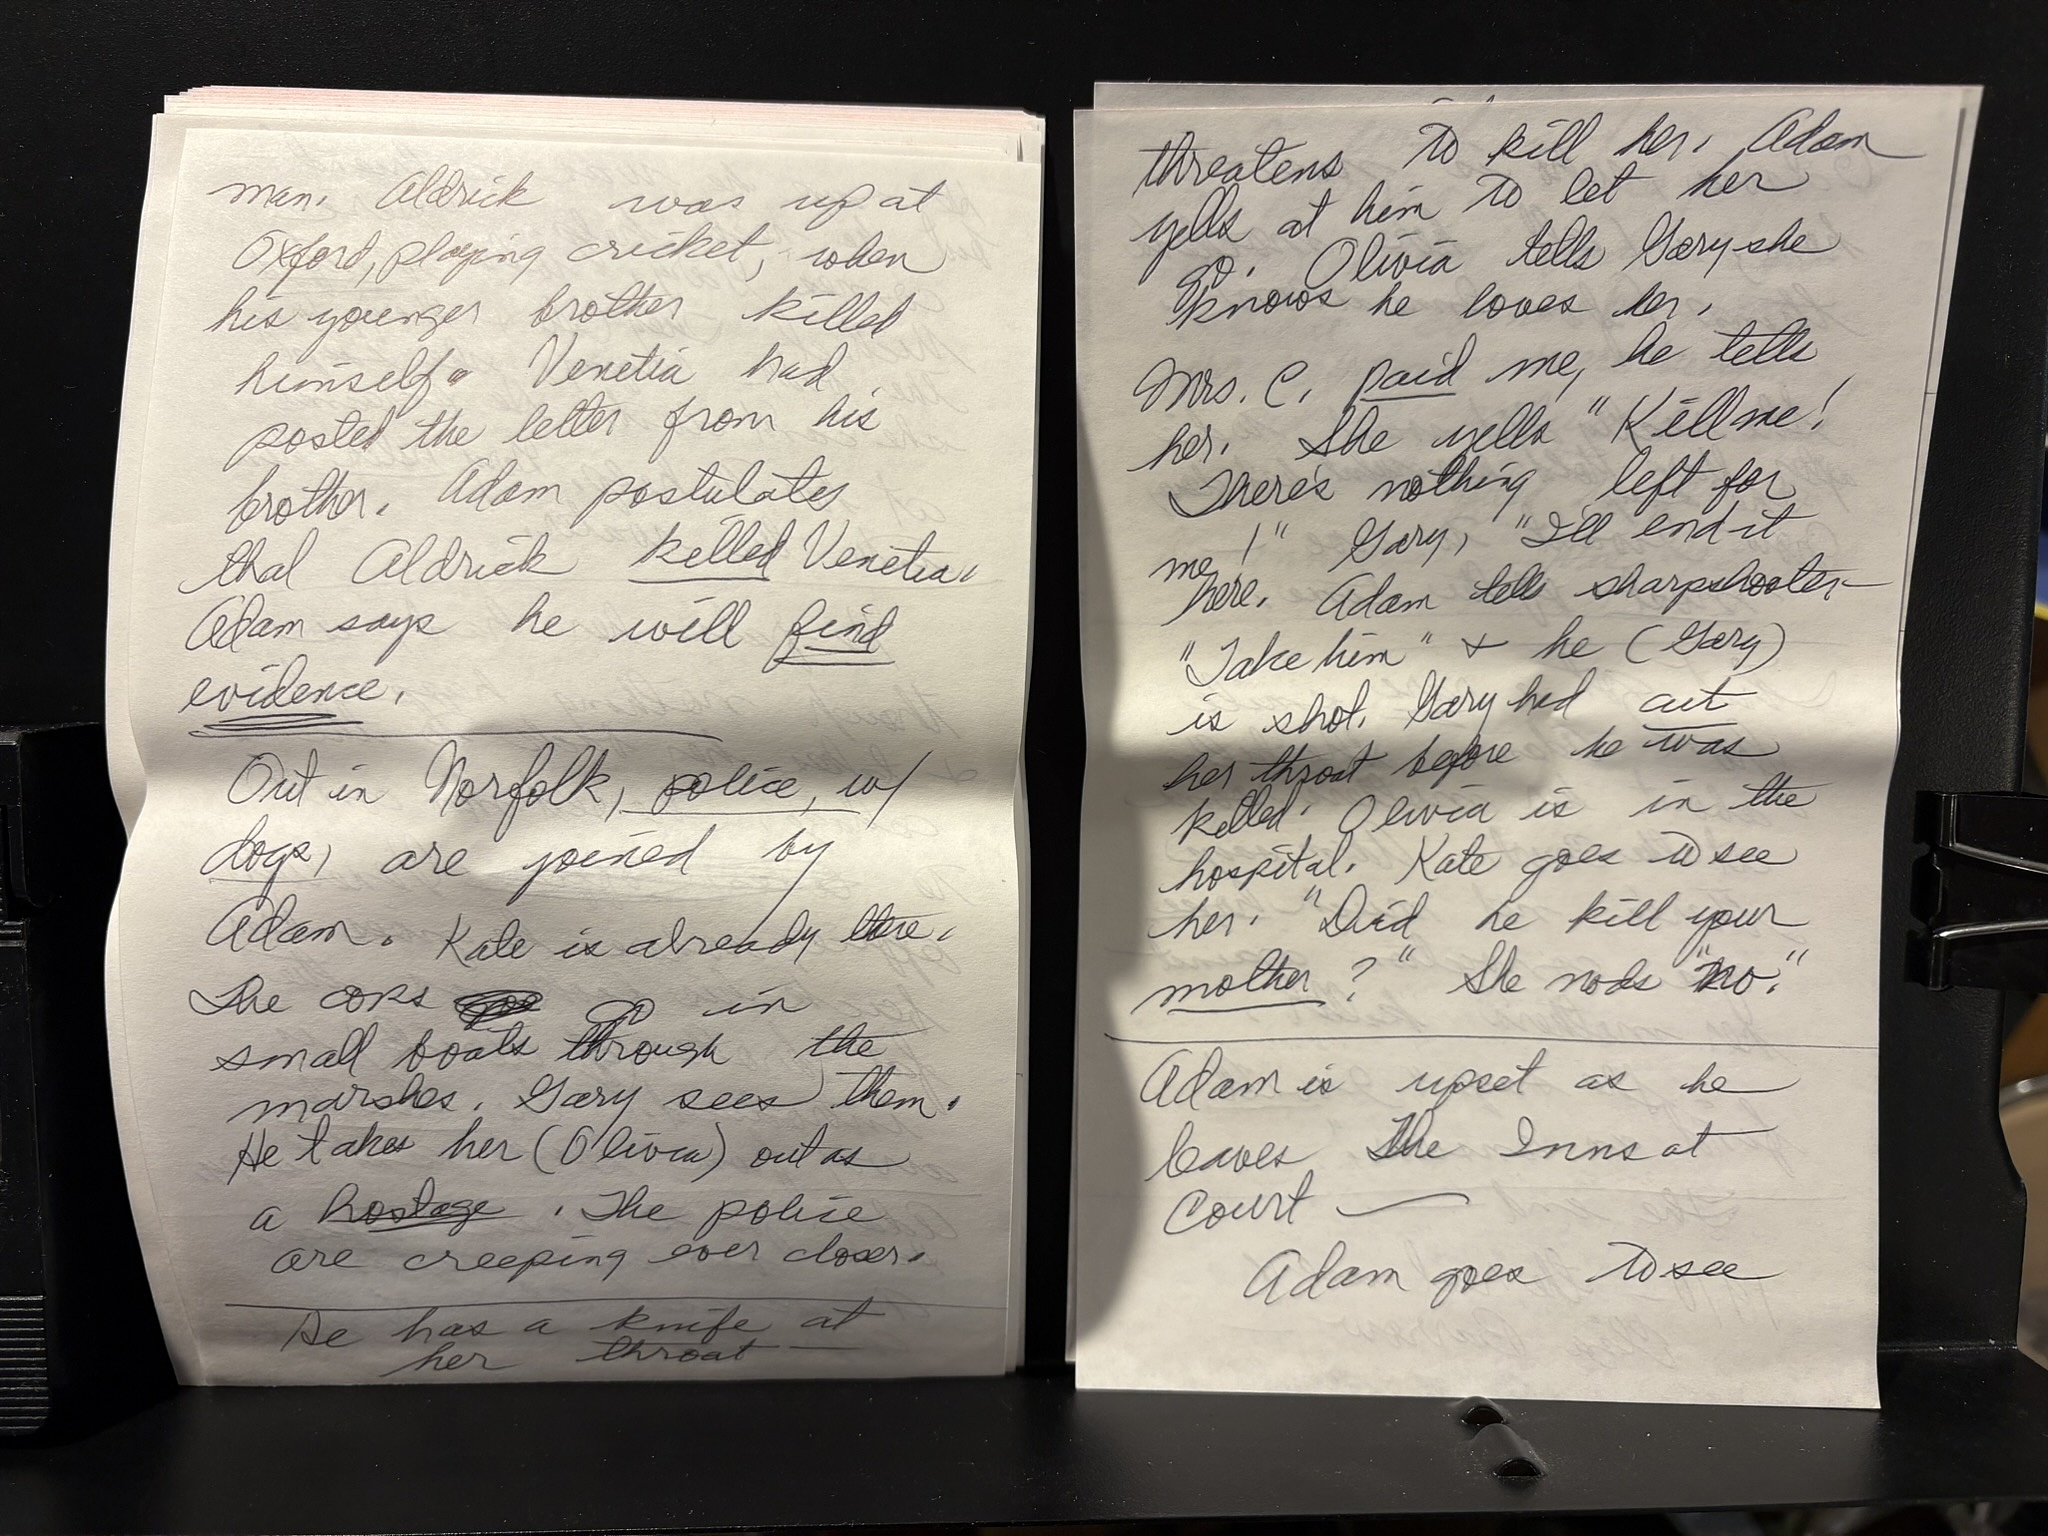 man. Aldrick was up at
Oxford, playing cricket, when
his younger brother killed
himself. Venetia had
posted the letter from his
brother. Adam postulates
that Aldrick killed Venetia.
Adam says he will find
evidence.
Out in Norfolk, police, w/
dogs, are joined by
Adam. Kate is already there.
The cops go in
small boats through the
marshes. Gary sees them.
He takes her (Olivia) out as
a hostage. The police
are creeping ever closer.
He has a knife at
her throat —
threatens to kill her. Adam
yells at him to let her
go. Olivia tells Gary she
knows he loves her.
Mrs. C. paid me, he tells
her. She yells "Kill me!
There's nothing left for
me!" Gary, "I'll end it
here. Adam tells sharpshooter—
"Take him" & he (Gary)
is shot. Gary had cut
her throat before he was
killed. Olivia is in the
hospital. Kate goes to see
her. "Did he kill your
mother?" She nods "no."
Adam is upset as he
leaves The Inns at
Court —
Adam goes to see